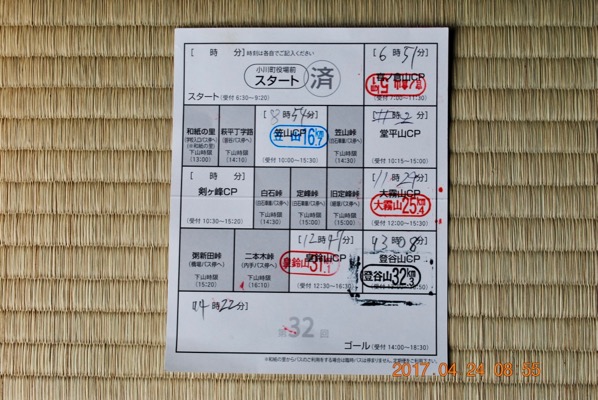 [　時　分] 時刻は各自でご記入ください
小川町役場前
スタート
済
スタート (受付 6:30〜8:20)
[6時51分]
官ノ倉山CP
(受付 7:00〜11:30)
和紙の里
(13:00)
萩平丁字路
下山時限
(14:10)
[8時54分]
笠山CP
笠山16
(受付 10:30〜15:30)
笠山峠
下山時限
(14:30)
堂平山CP
(受付 10:15〜15:00)
[　時　分]
剣ヶ峰CP
(受付 10:30〜15:20)
白石峠
下山時限
(14:30)
定峰峠
下山時限
(15:00)
旧定峰峠
下山時限
(15:00)
[11時21分]
大霧山CP
大霧山25
(受付 12:00〜15:30)
粥新田峠
(橋場バス停へ)
下山時限
(15:20)
二本木峠
(内手バス停へ)
下山時限
(16:10)
[12時47分]
皇鈴山CP
皇鈴山31.1
[13時08分]
登谷山CP
登谷山32
時22分]
第32回
ゴール (受付 14:00〜18:30)
2017.04.24 08:55